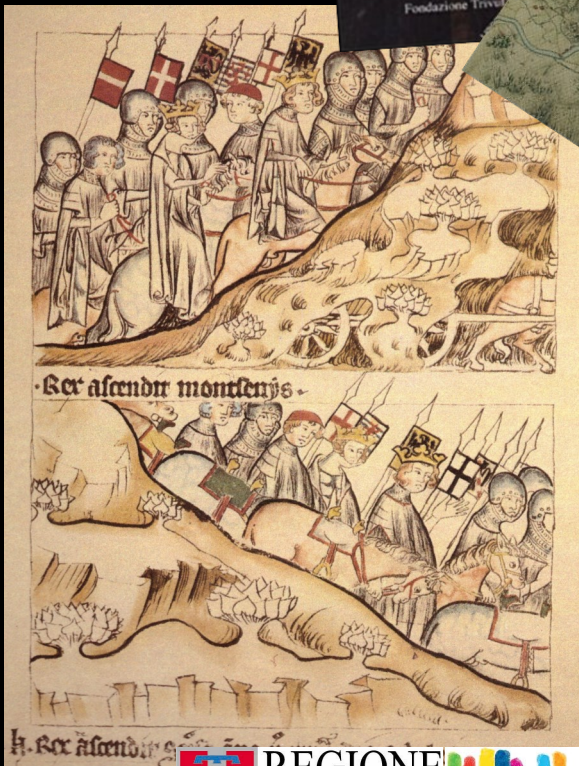 Fondazione Trivul
·Rex ascendit montsenys·
h. Rex ascendit
REGIONE